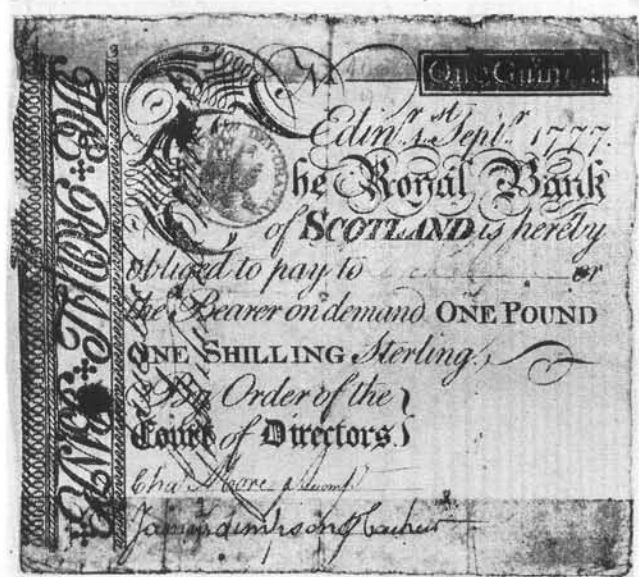 THE ROYAL BANK
No
One Guinea
Edinr. 1st. Septr. 1777.
The Royal Bank
of SCOTLAND is hereby
obliged to pay to or
the Bearer on demand ONE POUND
ONE SHILLING Sterling.
By Order of the
Court of Directors.
Chas Moore accompt
James Simpson Cashier